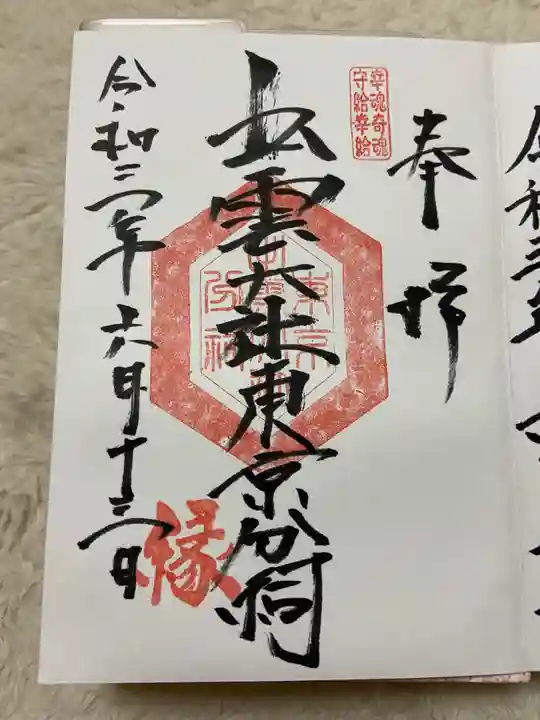 奉拝
幸魂奇魂
守給幸給
出雲大社東京分祠
東京
出雲大社
分祠
縁
令和三年六月十三日
令和三年